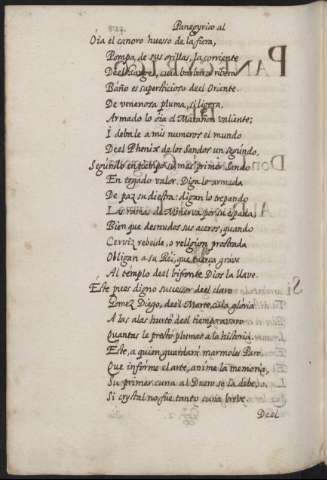 Panegyrico al
Oia el canoro huesso de la fiera,
Pompa de sus orillas, la corriente
Deel Ganges, cuia barbara ribera
Baño es supersticioso deel Oriente.
De venenosa pluma, si ligera,
Armado lo oia el Marañon valiente;
I debale a mis numeros el mundo
Deel Phenix de los Sandos un segundo.
Segundo en tiempo si, mas primer Sando
En togado valor. Digalo armada
De paz su diestra: digan lo trepando
Las ramas de Minerva por su espada;
Bien que desnudos sus aceros, quando
Cerviz rebelde, o religion postrada
Obligan a su Rei, que tuerça grave
Al templo deel bifonte Dios la llave.
Este pues digno successor deel claro
Gomez Diego, deel Marte, cuia gloria
A las alas hurtò deel tiempo avaro
Quantas le prestò plumas a la historia;
Este, a quien guardarà marmoles Paro,
Que informe el arte, anime la memoria,
Su primer cuna al Duero se la debe,
Si crystal no fue tanto cuna breve.
Deel